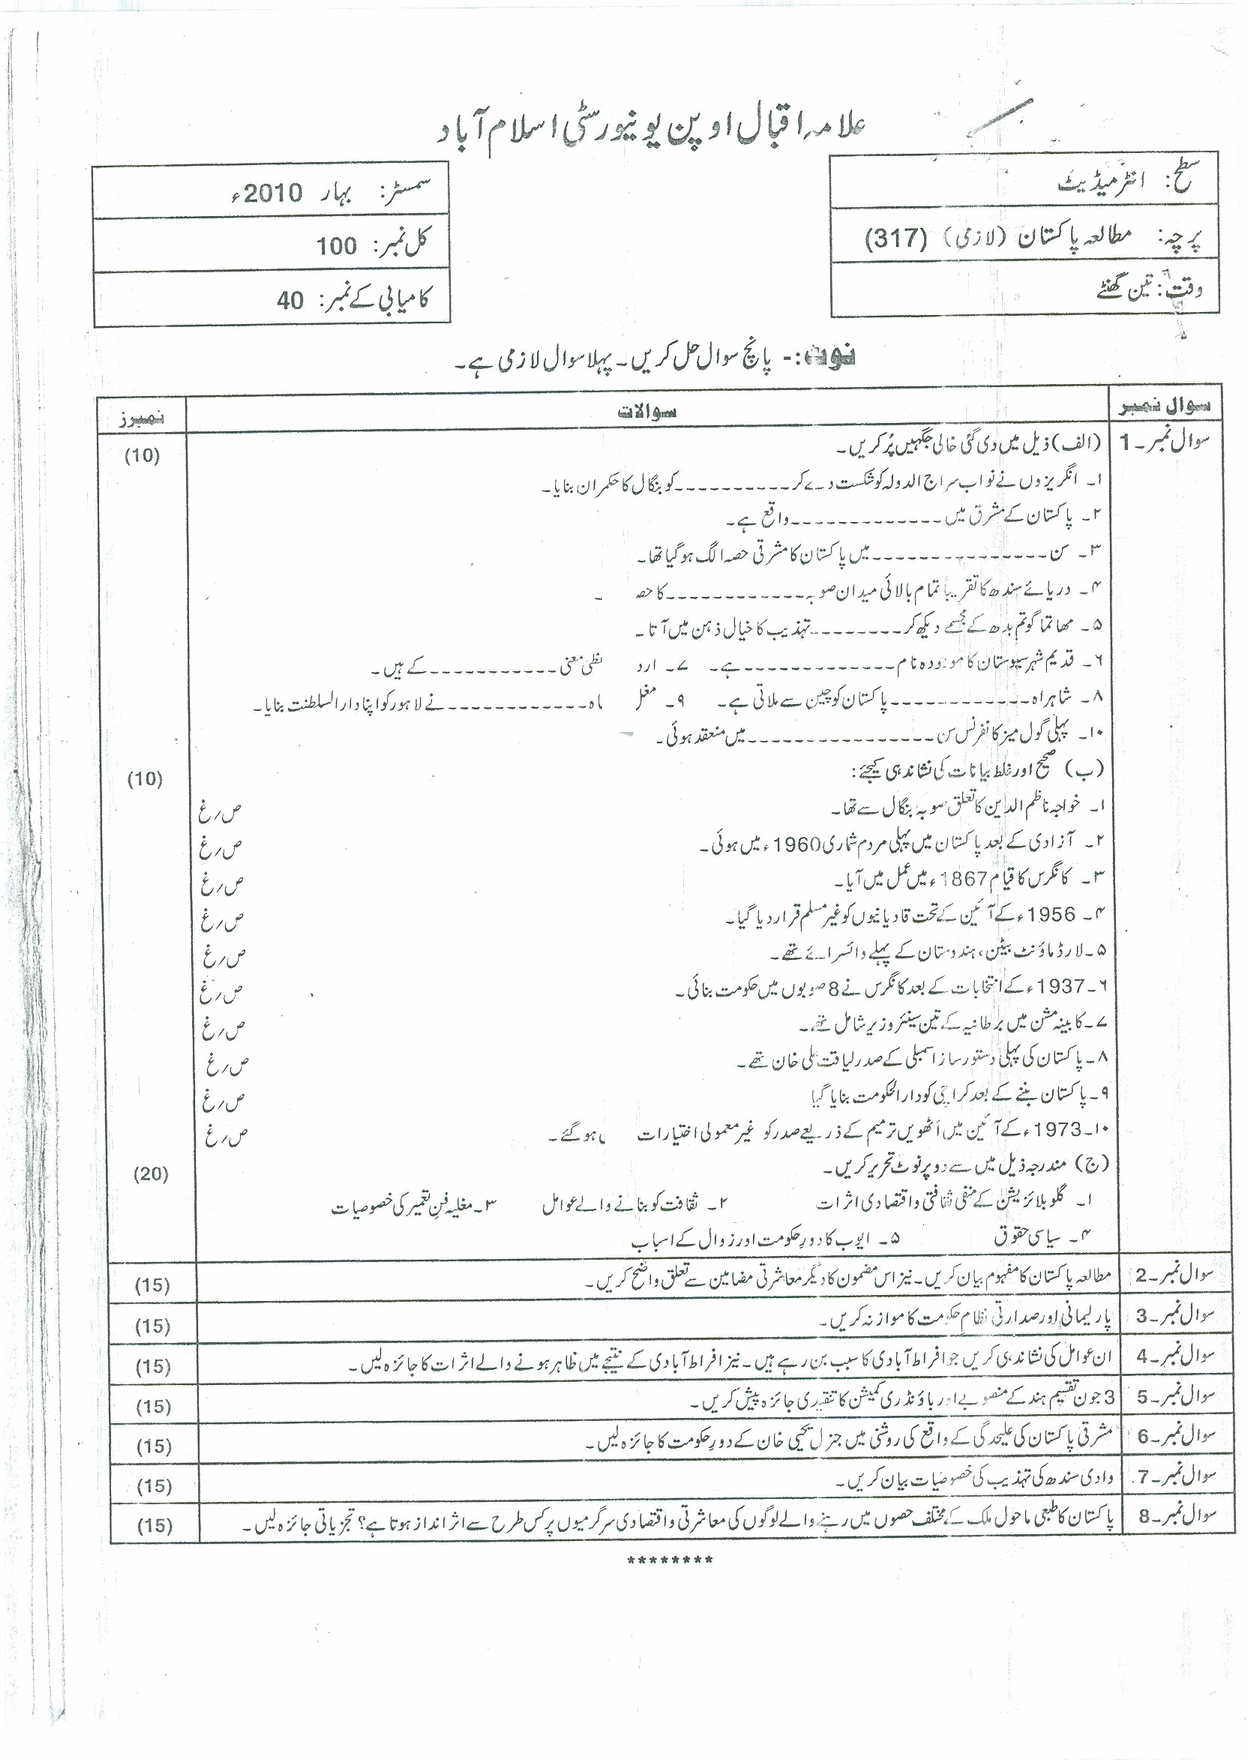 علامہ اقبال اوپن یونیورسٹی اسلام آباد
سطح: انٹرمیڈیٹ
پرچہ: مطالعہ پاکستان (لازمی) (317)
وقت: تین گھنٹے
سمسٹر: بہار 2010ء
کل نمبر: 100
کامیابی کے نمبر: 40
نوٹ:- پانچ سوال حل کریں۔ پہلا سوال لازمی ہے۔
سوال نمبر سوالات نمبرز
سوال نمبر۔1 (الف) ذیل میں دی گئی خالی جگہیں پُر کریں۔ (10)
۱۔ انگریزوں نے نواب سراج الدولہ کو شکست دے کر ---------- کو بنگال کا حکمران بنایا۔
۲۔ پاکستان کے مشرق میں ------------- واقع ہے۔
۳۔ سن --------------- میں پاکستان کا مشرقی حصہ الگ ہو گیا تھا۔
۴۔ دریائے سندھ کا تقریباً تمام بالائی میدان صوبہ ------------ کا حصہ ۔
۵۔ مہاتما گوتم بدھ کے مجسمے دیکھ کر -------- تہذیب کا خیال ذہن میں آتا ۔
۶۔ قدیم شہر سیوستان کا موجودہ نام ------------- ہے۔ ۷۔ ارد لفظی معنی ----------- کے ہیں۔
۸۔ شاہراہ ------------ پاکستان کو چین سے ملاتی ہے۔ ۹۔ مغل ------------ نے لاہور کو اپنا دارالسلطنت بنایا۔
۱۰۔ پہلی گول میز کانفرنس سن ---------------- میں منعقد ہوئی۔
(ب) صحیح اور غلط بیانات کی نشاندہی کیجئے: (10)
۱۔ خواجہ ناظم الدین کا تعلق صوبہ بنگال سے تھا۔ ص/غ
۲۔ آزادی کے بعد پاکستان میں پہلی مردم شماری 1960ء میں ہوئی۔ ص/غ
۳۔ کانگرس کا قیام 1867ء میں عمل میں آیا۔ ص/غ
۴۔ 1956ء کے آئین کے تحت قادیانیوں کو غیر مسلم قرار دیا گیا۔ ص/غ
۵۔ لارڈ ماؤنٹ بیٹن، ہندوستان کے پہلے وائسرائے تھے۔ ص/غ
۶۔ 1937ء کے انتخابات کے بعد کانگرس نے 8 صوبوں میں حکومت بنائی۔ ص/غ
۷۔ کابینہ مشن میں برطانیہ کے تین سینئر وزیر شامل تھے۔ ص/غ
۸۔ پاکستان کی پہلی دستور ساز اسمبلی کے صدر لیاقت علی خان تھے۔ ص/غ
۹۔ پاکستان بننے کے بعد کراچی کو دارالحکومت بنایا گیا ص/غ
۱۰۔ 1973ء کے آئین میں آٹھویں ترمیم کے ذریعے صدر کو غیر معمولی اختیارات ہو گئے۔ ص/غ
(ج) مندرجہ ذیل میں سے دو پر نوٹ تحریر کریں۔ (20)
۱۔ گلوبلائزیشن کے منفی ثقافتی و اقتصادی اثرات ۲۔ ثقافت کو بنانے والے عوامل ۳۔ مغلیہ فن تعمیر کی خصوصیات
۴۔ سیاسی حقوق ۵۔ ایوب کا دورِ حکومت اور زوال کے اسباب
سوال نمبر۔2 مطالعہ پاکستان کا مفہوم بیان کریں۔ نیز اس مضمون کا دیگر معاشرتی مضامین سے تعلق واضح کریں۔ (15)
سوال نمبر۔3 پارلیمانی اور صدارتی نظامِ حکومت کا موازنہ کریں۔ (15)
سوال نمبر۔4 ان عوامل کی نشاندہی کریں جو افراط آبادی کا سبب بن رہے ہیں۔ نیز افراط آبادی کے نتیجے میں ظاہر ہونے والے اثرات کا جائزہ لیں۔ (15)
سوال نمبر۔5 3 جون تقسیم ہند کے منصوبے اور باؤنڈری کمیشن کا تنقیدی جائزہ پیش کریں۔ (15)
سوال نمبر۔6 مشرقی پاکستان کی علیحدگی کے واقع کی روشنی میں جنرل یحییٰ خان کے دورِ حکومت کا جائزہ لیں۔ (15)
سوال نمبر۔7 وادی سندھ کی تہذیب کی خصوصیات بیان کریں۔ (15)
سوال نمبر۔8 پاکستان کا طبعی ماحول ملک کے مختلف حصوں میں رہنے والے لوگوں کی معاشرتی و اقتصادی سرگرمیوں پر کس طرح سے اثر انداز ہوتا ہے؟ تجزیاتی جائزہ لیں۔ (15)
********